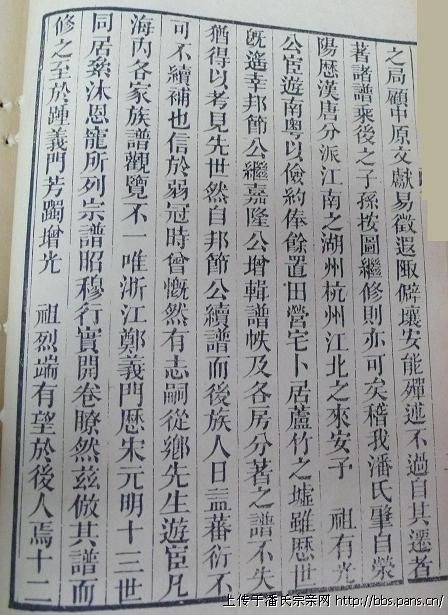 之局顧中原文獻易徵遐陬僻壤安能殫述不過自其遷者
著諸譜乘後之子孫按圖繼修則亦可矣稽我潘氏肇自滎
陽歷漢唐分派江南之湖州杭州江北之來安子　祖有孝
公宦遊南粵以儉約俸餘置田營宅卜居蘆竹之墟雖歷世
旣遙幸邦節公繼嘉隆公增輯譜帙及各房分著之譜不失
猶得以考見先世然自邦節公續譜而後族人日益蕃衍不
可不續補也信於弱冠時曾慨然有志嗣從鄉先生遊宦凡
海內各家族譜觀覽不一唯浙江鄭義門歷宋元明十三世
同居纍沐恩寵所列宗譜昭穆行實開卷瞭然茲倣其譜而
修之至於踵義門芳躅增光　祖烈端有望於後人焉十二
上传于潘氏宗亲网 http://bbs.pans.cn/